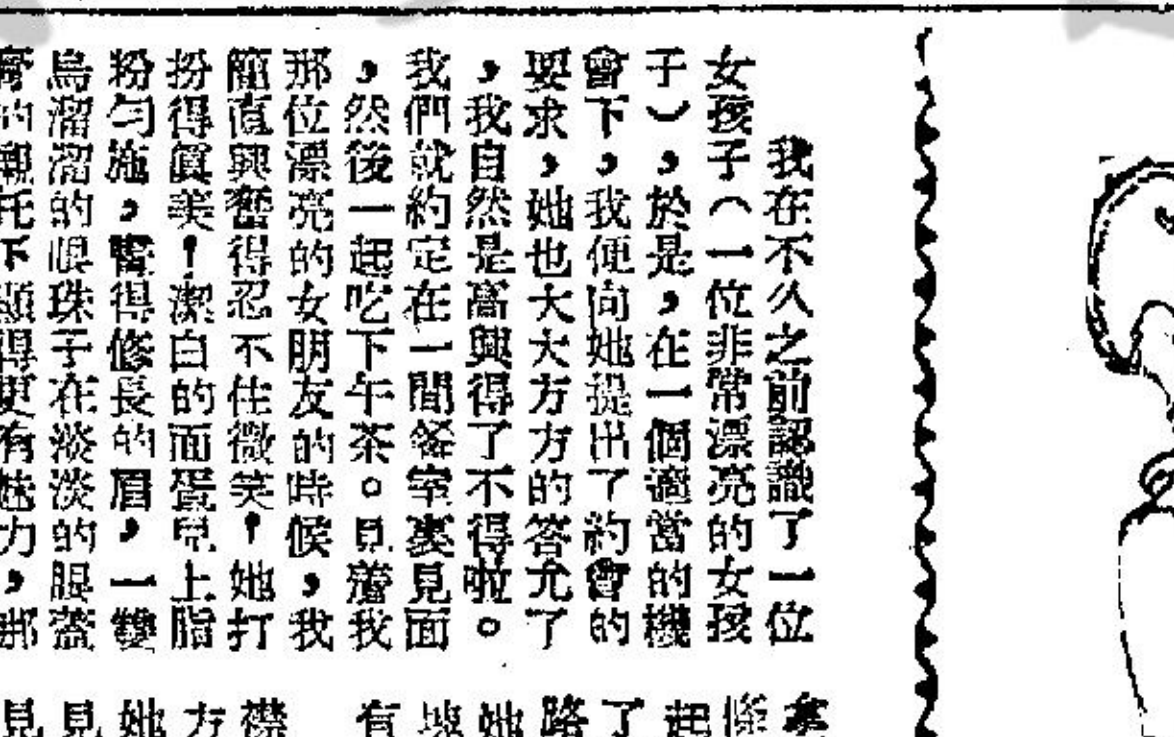 我在不久之前認識了一位
女孩子（一位非常漂亮的女孩
子），於是，在一個適當的機
會下，我便向她提出了約會的
要求，她也大大方方的答允了
，我自然是高興得了不得啦。
我們就約定在一間餐室裏見面
，然後一起吃下午茶。見着我
那位漂亮的女朋友的時候，我
簡直興奮得忍不住微笑！她打
扮得眞美！潔白的面蛋兒上脂
粉勻施，畫得修長的眉，一雙
烏溜溜的眼珠子在淡淡的眼蓋
膏的襯托下顯得更有魅力，那
起條
了
路
她
有
襟
方
她
見
見